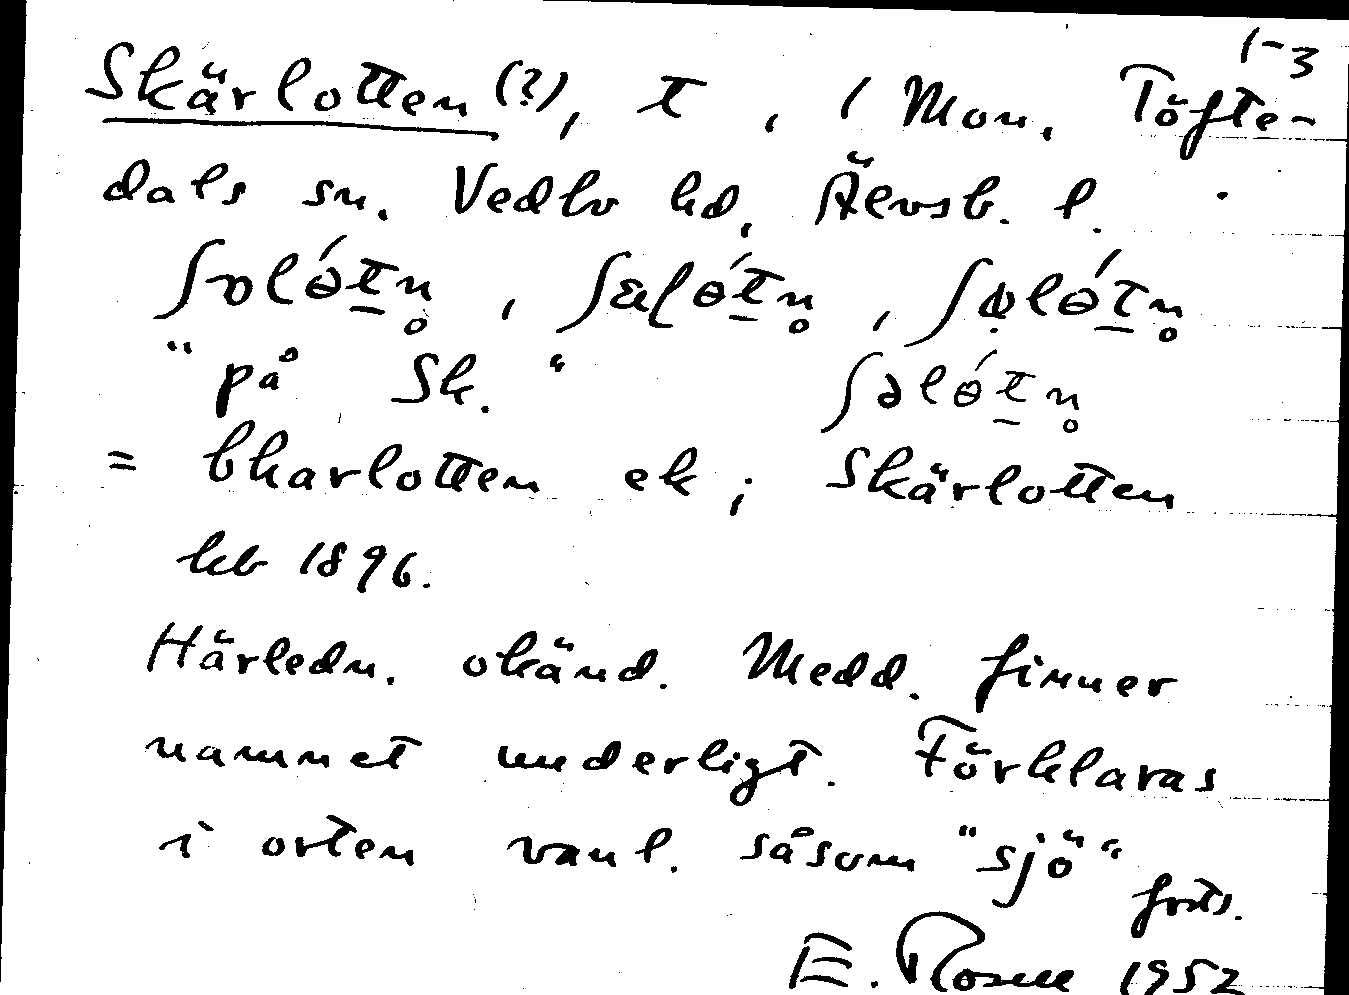 1-3
Skärlotten (?), t, i Mon, Töfte-
dals sn. Vedbo hd, Älvsb. l.
"på Sk."
= Charlotten ek; Skärlotten
hb 1896.
Härledn. okänd. Medd. finner
namnet underligt. Förklaras
i orten vanl. såsom "sjö"
forts.
E. Rosell 1952